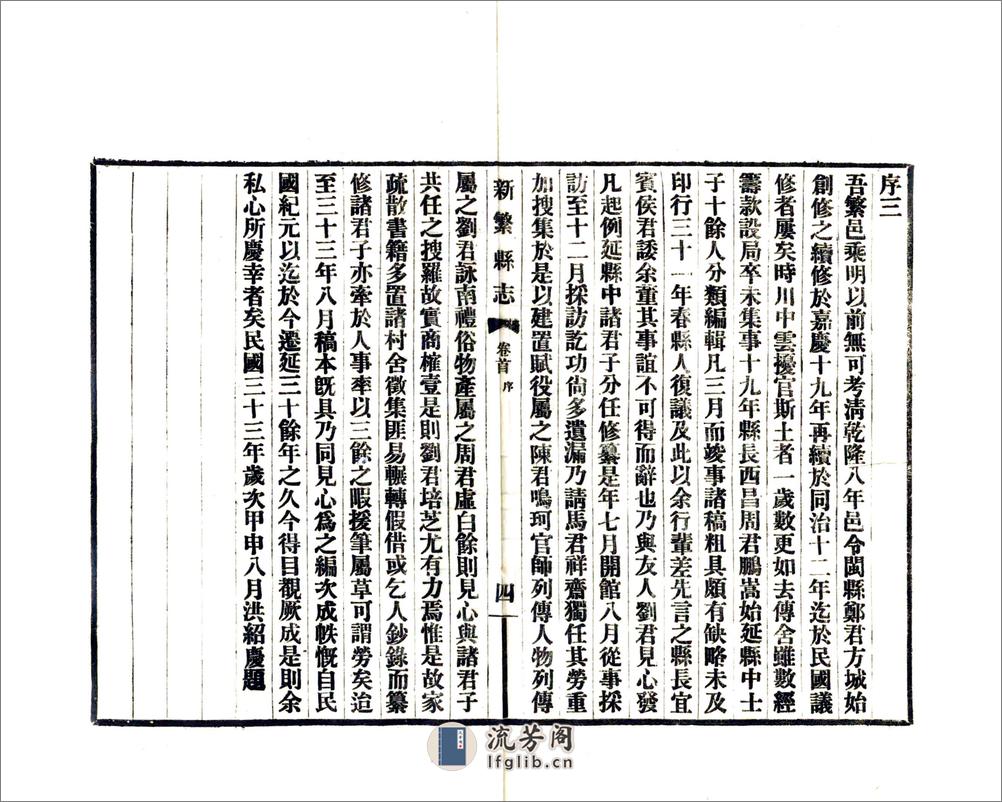 序三
吾繁邑乘明以前無可考清乾隆八年邑令閩縣鄭君方城始
創修之續修於嘉慶十九年再續於同治十二年迄於民國議
修者屢矣時川中雲擾官斯土者一歲數更如去傳舍雖數經
籌款設局卒未集事十九年縣長西昌周君鵬嵩始延縣中士
子十餘人分類編輯凡三月而竣事諸稿粗具頗有缺略未及
印行三十一年春縣人復議及此以余行輩差先言之縣長宜
賓侯君諉余董其事誼不可得而辭也乃與友人劉君見心發
凡起例延縣中諸君子分任修纂是年七月開館八月從事採
訪至十二月採訪訖功尙多遺漏乃請馬君祥齋獨任其勞重
加搜集於是以建置賦役屬之陳君鳴珂官師列傳人物列傳
新繁縣志 卷首 序 四
屬之劉君詠南禮俗物產屬之周君虛白餘則見心與諸君子
共任之搜羅故實商榷壹是則劉君培芝尤有力焉惟是故家
疏散書籍多置諸村舍徵集匪易輾轉假借或乞人鈔錄而纂
修諸君子亦牽於人事率以三餘之暇援筆屬草可謂勞矣迨
至三十三年八月稿本旣具乃同見心爲之編次成帙慨自民
國紀元以迄於今遷延三十餘年之久今得目觀厥成是則余
私心所慶幸者矣民國三十三年歲次甲申八月洪紹慶題
流芳阁
lfglib.cn